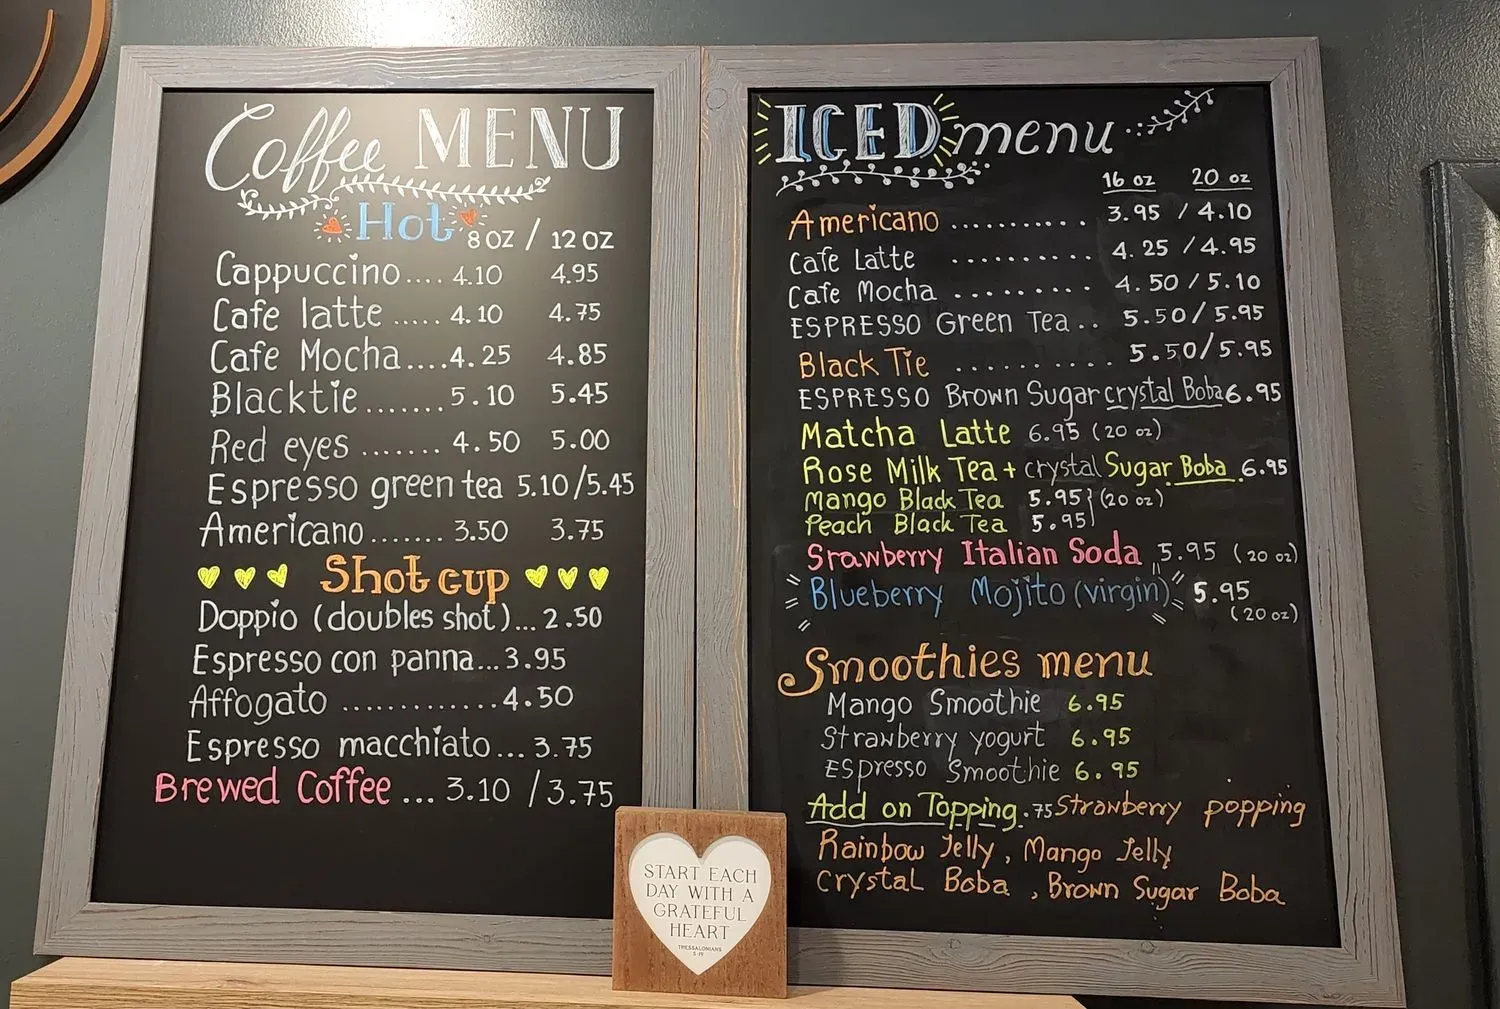 Coffee MENU
Hot 8 OZ / 12 OZ
Cappuccino.... 4.10 4.95
Cafe latte ..... 4.10 4.75
Cafe Mocha.... 4.25 4.85
Blacktie....... 5.10 5.45
Red eyes ....... 4.50 5.00
Espresso green tea 5.10/5.45
Americano....... 3.50 3.75
Shot cup
Doppio (doubles shot)... 2.50
Espresso con panna... 3.95
Affogato ............. 4.50
Espresso macchiato... 3.75
Brewed Coffee ... 3.10 / 3.75
ICED menu
16 oz 20 oz
Americano .......... 3.95 / 4.10
Cafe Latte .......... 4.25 / 4.95
Cafe Mocha ......... 4.50 / 5.10
ESPRESSO Green Tea .. 5.50 / 5.95
Black Tie .......... 5.50/5.95
ESPRESSO Brown Sugar crystal Boba 6.95
Matcha Latte 6.95 (20 oz)
Rose Milk Tea + crystal Sugar Boba 6.95
Mango Black Tea 5.95 } (20 oz)
Peach Black Tea 5.95
Srawberry Italian Soda 5.95 (20 oz)
Blueberry Mojito (virgin) 5.95
(20 oz)
Smoothies menu
Mango Smoothie 6.95
Strawberry yogurt 6.95
Espresso Smoothie 6.95
Add on Topping .75 Strawberry popping
Rainbow Jelly, Mango Jelly
Crystal Boba, Brown Sugar Boba
START EACH
DAY WITH A
GRATEFUL
HEART
THESSALONIANS